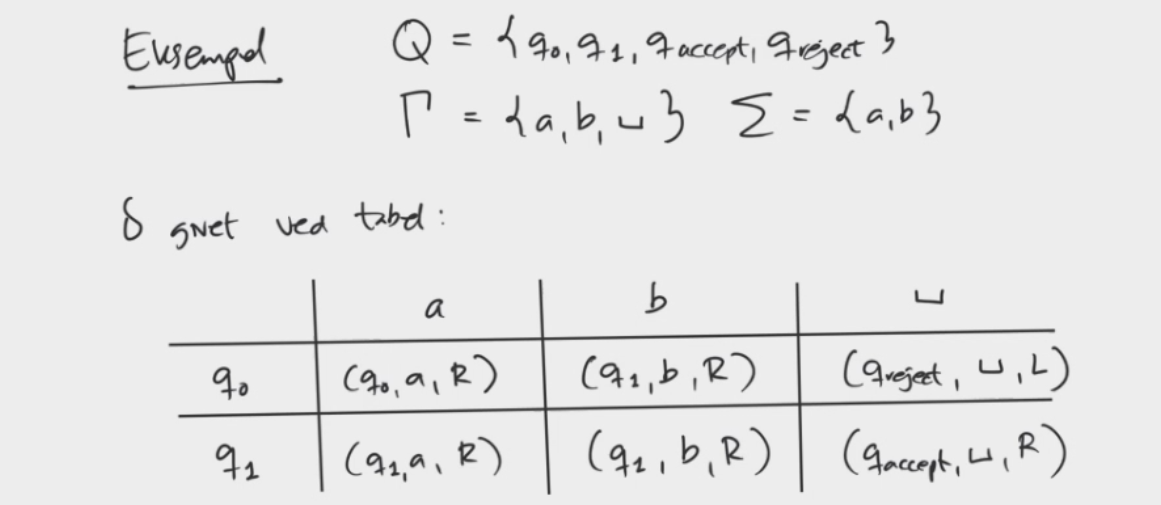 Eksempel Q = {q₀, q₁, q accept, q reject}
Γ = {a, b, ⊔} Σ = {a, b}
δ givet ved tabel:
a b ⊔
q₀ (q₀, a, R) (q₁, b, R) (q reject, ⊔, L)
q₁ (q₁, a, R) (q₁, b, R) (q accept, ⊔, R)